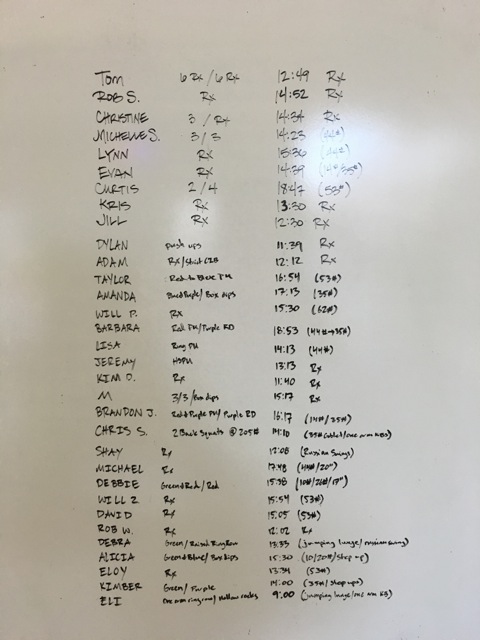 Tom 6 Rx / 6 Rx 12:49 Rx
ROB S. Rx 14:52 Rx
CHRISTINE 3 / Rx 14:34 Rx
MICHELLE S. 3/3 14:23 (44#)
LYNN Rx 15:36 (44#)
EVAN Rx 14:39
CURTIS 2/4 18:47 (53#)
KRIS Rx 13:30 Rx
JILL Rx 12:30 Rx
DYLAN push ups 11:39 Rx
ADAM Rx/Strict C2B 12:12 Rx
TAYLOR Red to Black PU 16:54 (53#)
AMANDA Blue&Purple/ Box dips 17:13 (35#)
WILL P. Rx 15:30 (62#)
BARBARA Red PU/Purple RD 18:53 (44#→35#)
LISA Ring PU 14:13 (44#)
JEREMY HSPU 13:13 Rx
KIM D. Rx 11:40 Rx
M 3/3/Box dips 15:17 Rx
BRANDON J. Red&Purple PU/ Purple RD 16:17
CHRIS S. 2 Back Squats @ 205# 14:10
SHAY Rx 12:08 (Russian Swings)
MICHAEL Rx 17:48 (44#/20")
DEBBIE Green&Red/Red 15:38
WILL Z Rx 15:54 (53#)
DAVID Rx 15:05 (53#)
ROB W. Rx 12:02 Rx
DEBRA Green/Raised Ring Row 13:33 (jumping lunge/russian swing)
ALICIA Green&Blue/ Box dips 15:30 (10/20#/Step up)
ELOY Rx 13:34 (53#)
KIMBER Green/ Purple 14:00 (35#/step ups)
ELI one arm ring row/ Hollow rocks 9:00 (jumping lunge/one arm KB)